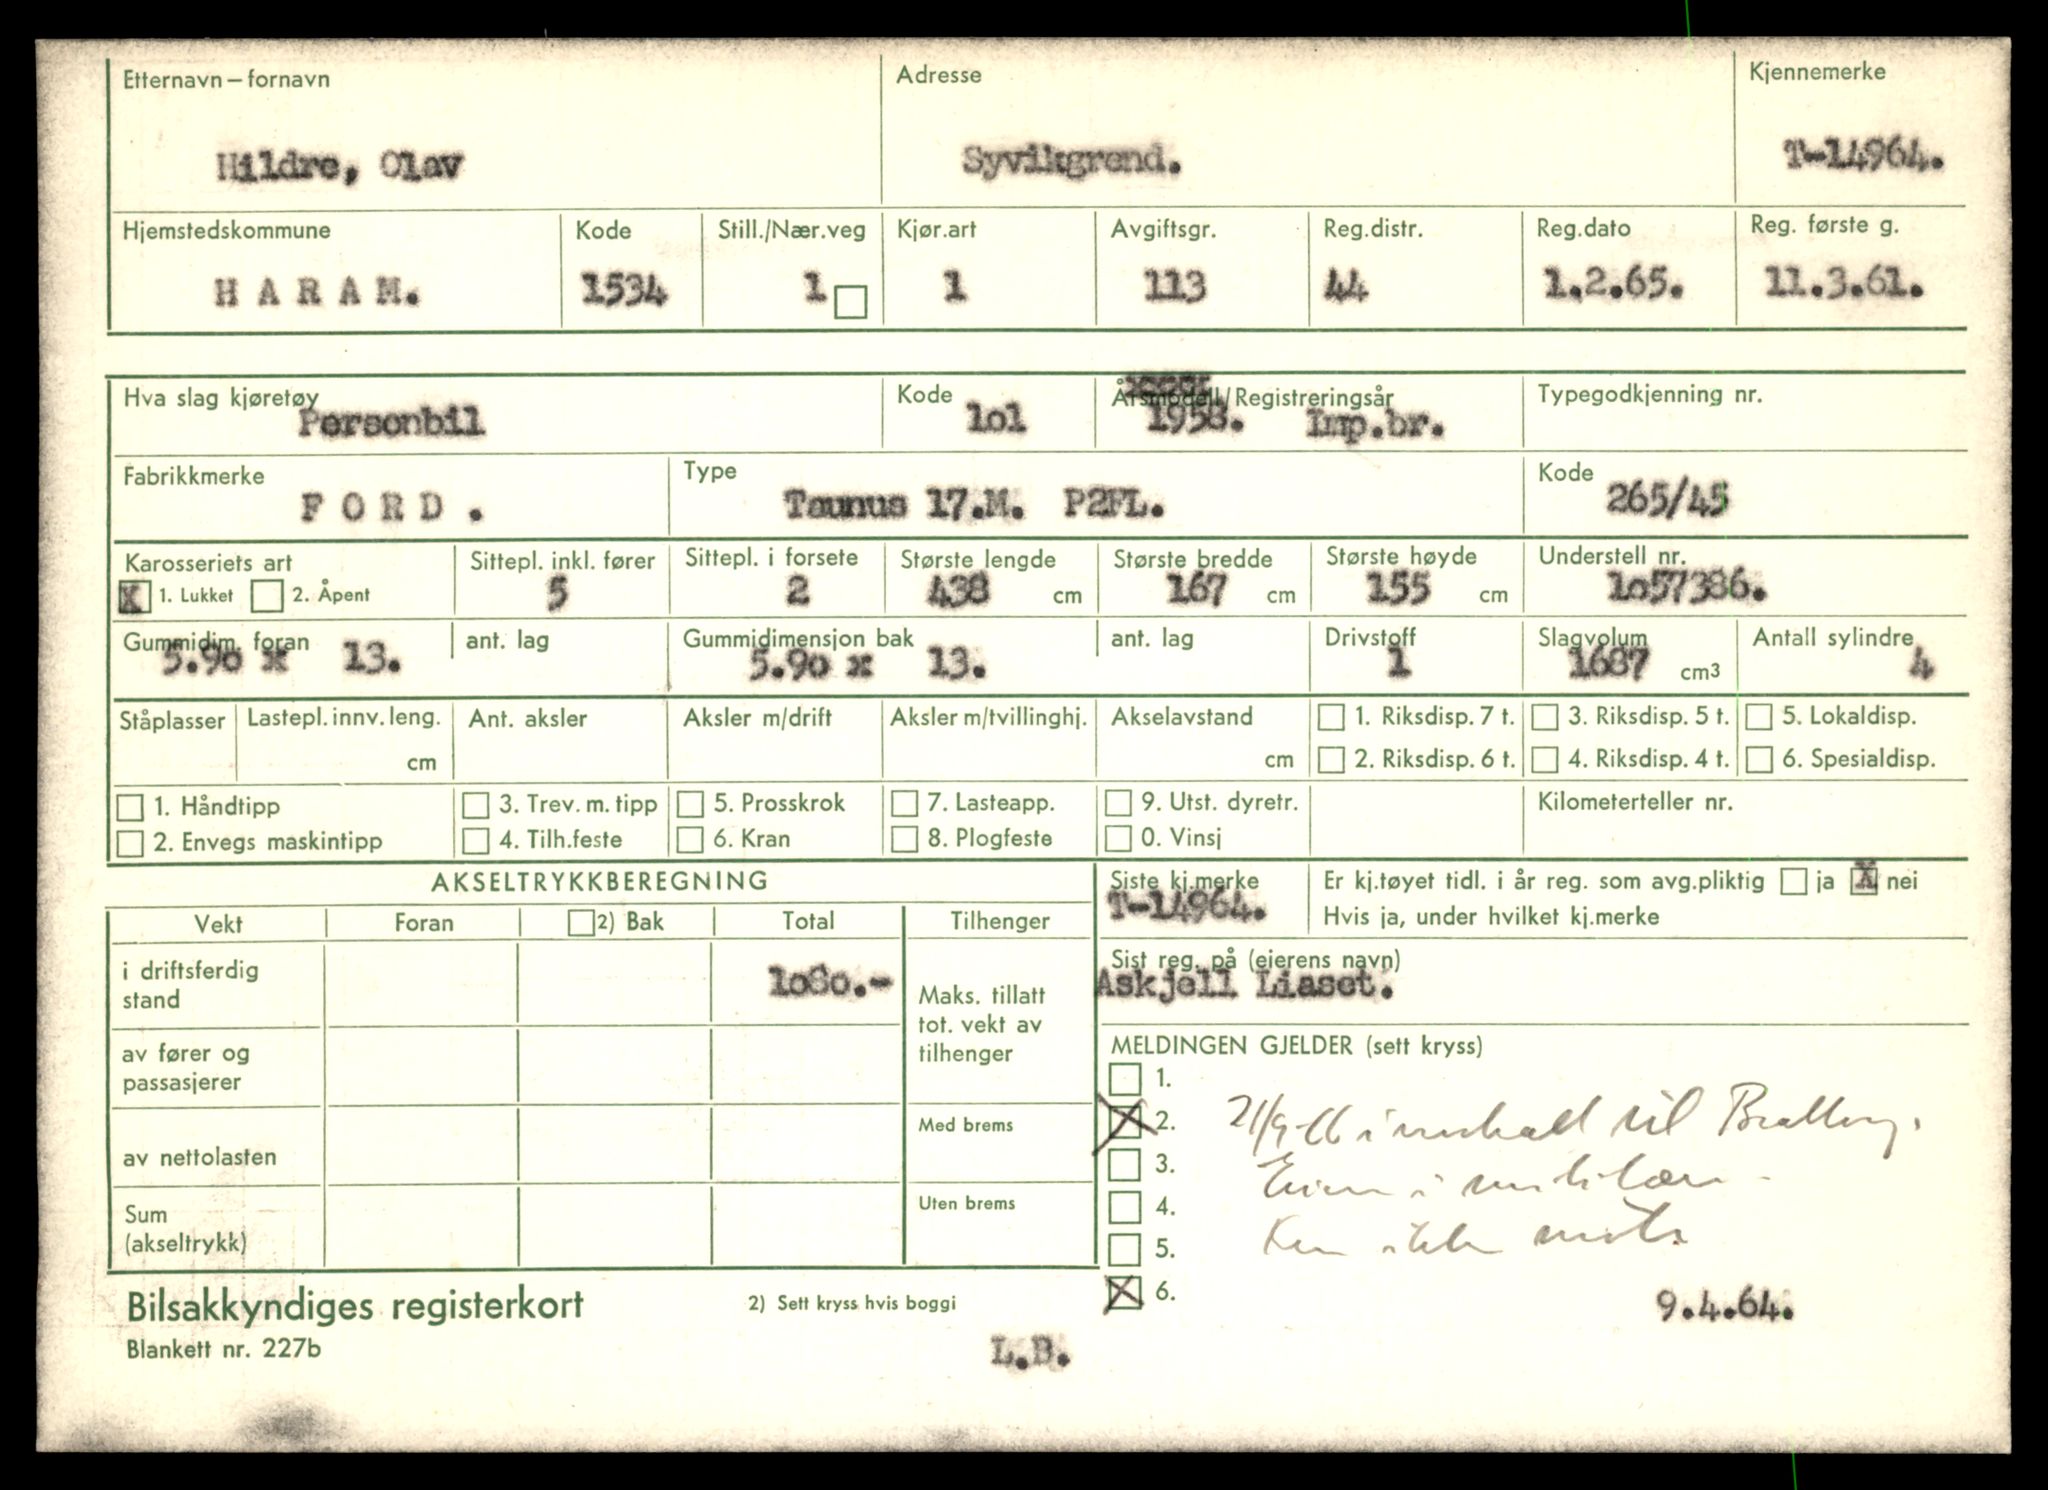 Etternavn – fornavn Adresse Kjennemerke
Hildre, Olav Syvikgrend. T-14964.
Hjemstedskommune Kode Still./Nær.veg Kjør.art Avgiftsgr. Reg.distr. Reg.dato Reg. første g.
HARAM. 1534 1 1 113 44 1.2.65. 11.3.61.
Hva slag kjøretøy Kode Årsmodell/Registreringsår Typegodkjenning nr.
Personbil 1o1 1958. Imp.br.
Fabrikkmerke Type Kode
FORD. Taunus 17.M. P2FL. 265/45
Karosseriets art Sittepl. inkl. fører Sittepl. i forsete Største lengde Største bredde Største høyde Understell nr.
X 1. Lukket 2. Åpent 5 2 438 cm 167 cm 155 cm 1o57386.
Gummidim. foran ant. lag Gummidimensjon bak ant. lag Drivstoff Slagvolum Antall sylindre
5.9o x 13. 5.9o x 13. 1 1687 cm3 4
Ståplasser Lastepl. innv. leng. Ant. aksler Aksler m/drift Aksler m/tvillinghj. Akselavstand 1. Riksdisp. 7 t. 3. Riksdisp. 5 t. 5. Lokaldisp.
cm cm 2. Riksdisp. 6 t. 4. Riksdisp. 4 t. 6. Spesialdisp.
1. Håndtipp 3. Trev. m. tipp 5. Prosskrok 7. Lasteapp. 9. Utst. dyretr. Kilometerteller nr.
2. Envegs maskintipp 4. Tilh.feste 6. Kran 8. Plogfeste 0. Vinsj
AKSELTRYKKBEREGNING Siste kj.merke Er kj.tøyet tidl. i år reg. som avg.pliktig ja X nei
T-14964. Hvis ja, under hvilket kj.merke
Vekt Foran 2) Bak Total Tilhenger
Sist reg. på (eierens navn)
i driftsferdig stand 1o8o.- Askjell Liaset.
Maks. tillatt tot. vekt av tilhenger
av fører og passasjerer MELDINGEN GJELDER (sett kryss)
1.
Med brems X 2. til
av nettolasten 3. i
Uten brems 4. ikke
Sum (akseltrykk) 5.
X 6. 9.4.64.
Bilsakkyndiges registerkort 2) Sett kryss hvis boggi
Blankett nr. 227b L.B.